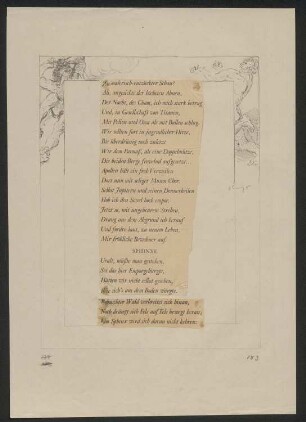 Als, angesichts der höchsten Ahnen,
Der Nacht, des Chaos, ich mich stark betrug
Und, in Gesellschaft von Titanen,
Mit Pelion und Ossa als mit Ballen schlug.
Wir tollten fort in jugendlicher Hitze,
Bis überdrüssig noch zuletzt
Wir dem Parnaß, als eine Doppelmütze,
Die beiden Berge frevelnd aufgesetzt...
Apollen hält ein froh Verweilen
Dort nun mit seliger Musen Chor.
Selbst Jupitern und seinen Donnerkeilen
Hob ich den Sessel hoch empor.
Jetzt so, mit ungeheurem Streben,
Drang aus dem Abgrund ich herauf
Und fordre laut, zu neuem Leben,
Mir fröhliche Bewohner auf.
Uralt, müßte man gestehen,
Sei das hier Emporgebürgte,
Hätten wir nicht selbst gesehen,
Wie sich's aus dem Boden würgte.
Bebuschter Wald verbreitet sich hinan,
Noch drängt sich Fels auf Fels bewegt heran;
Ein Sphinx wird sich daran nicht kehren: